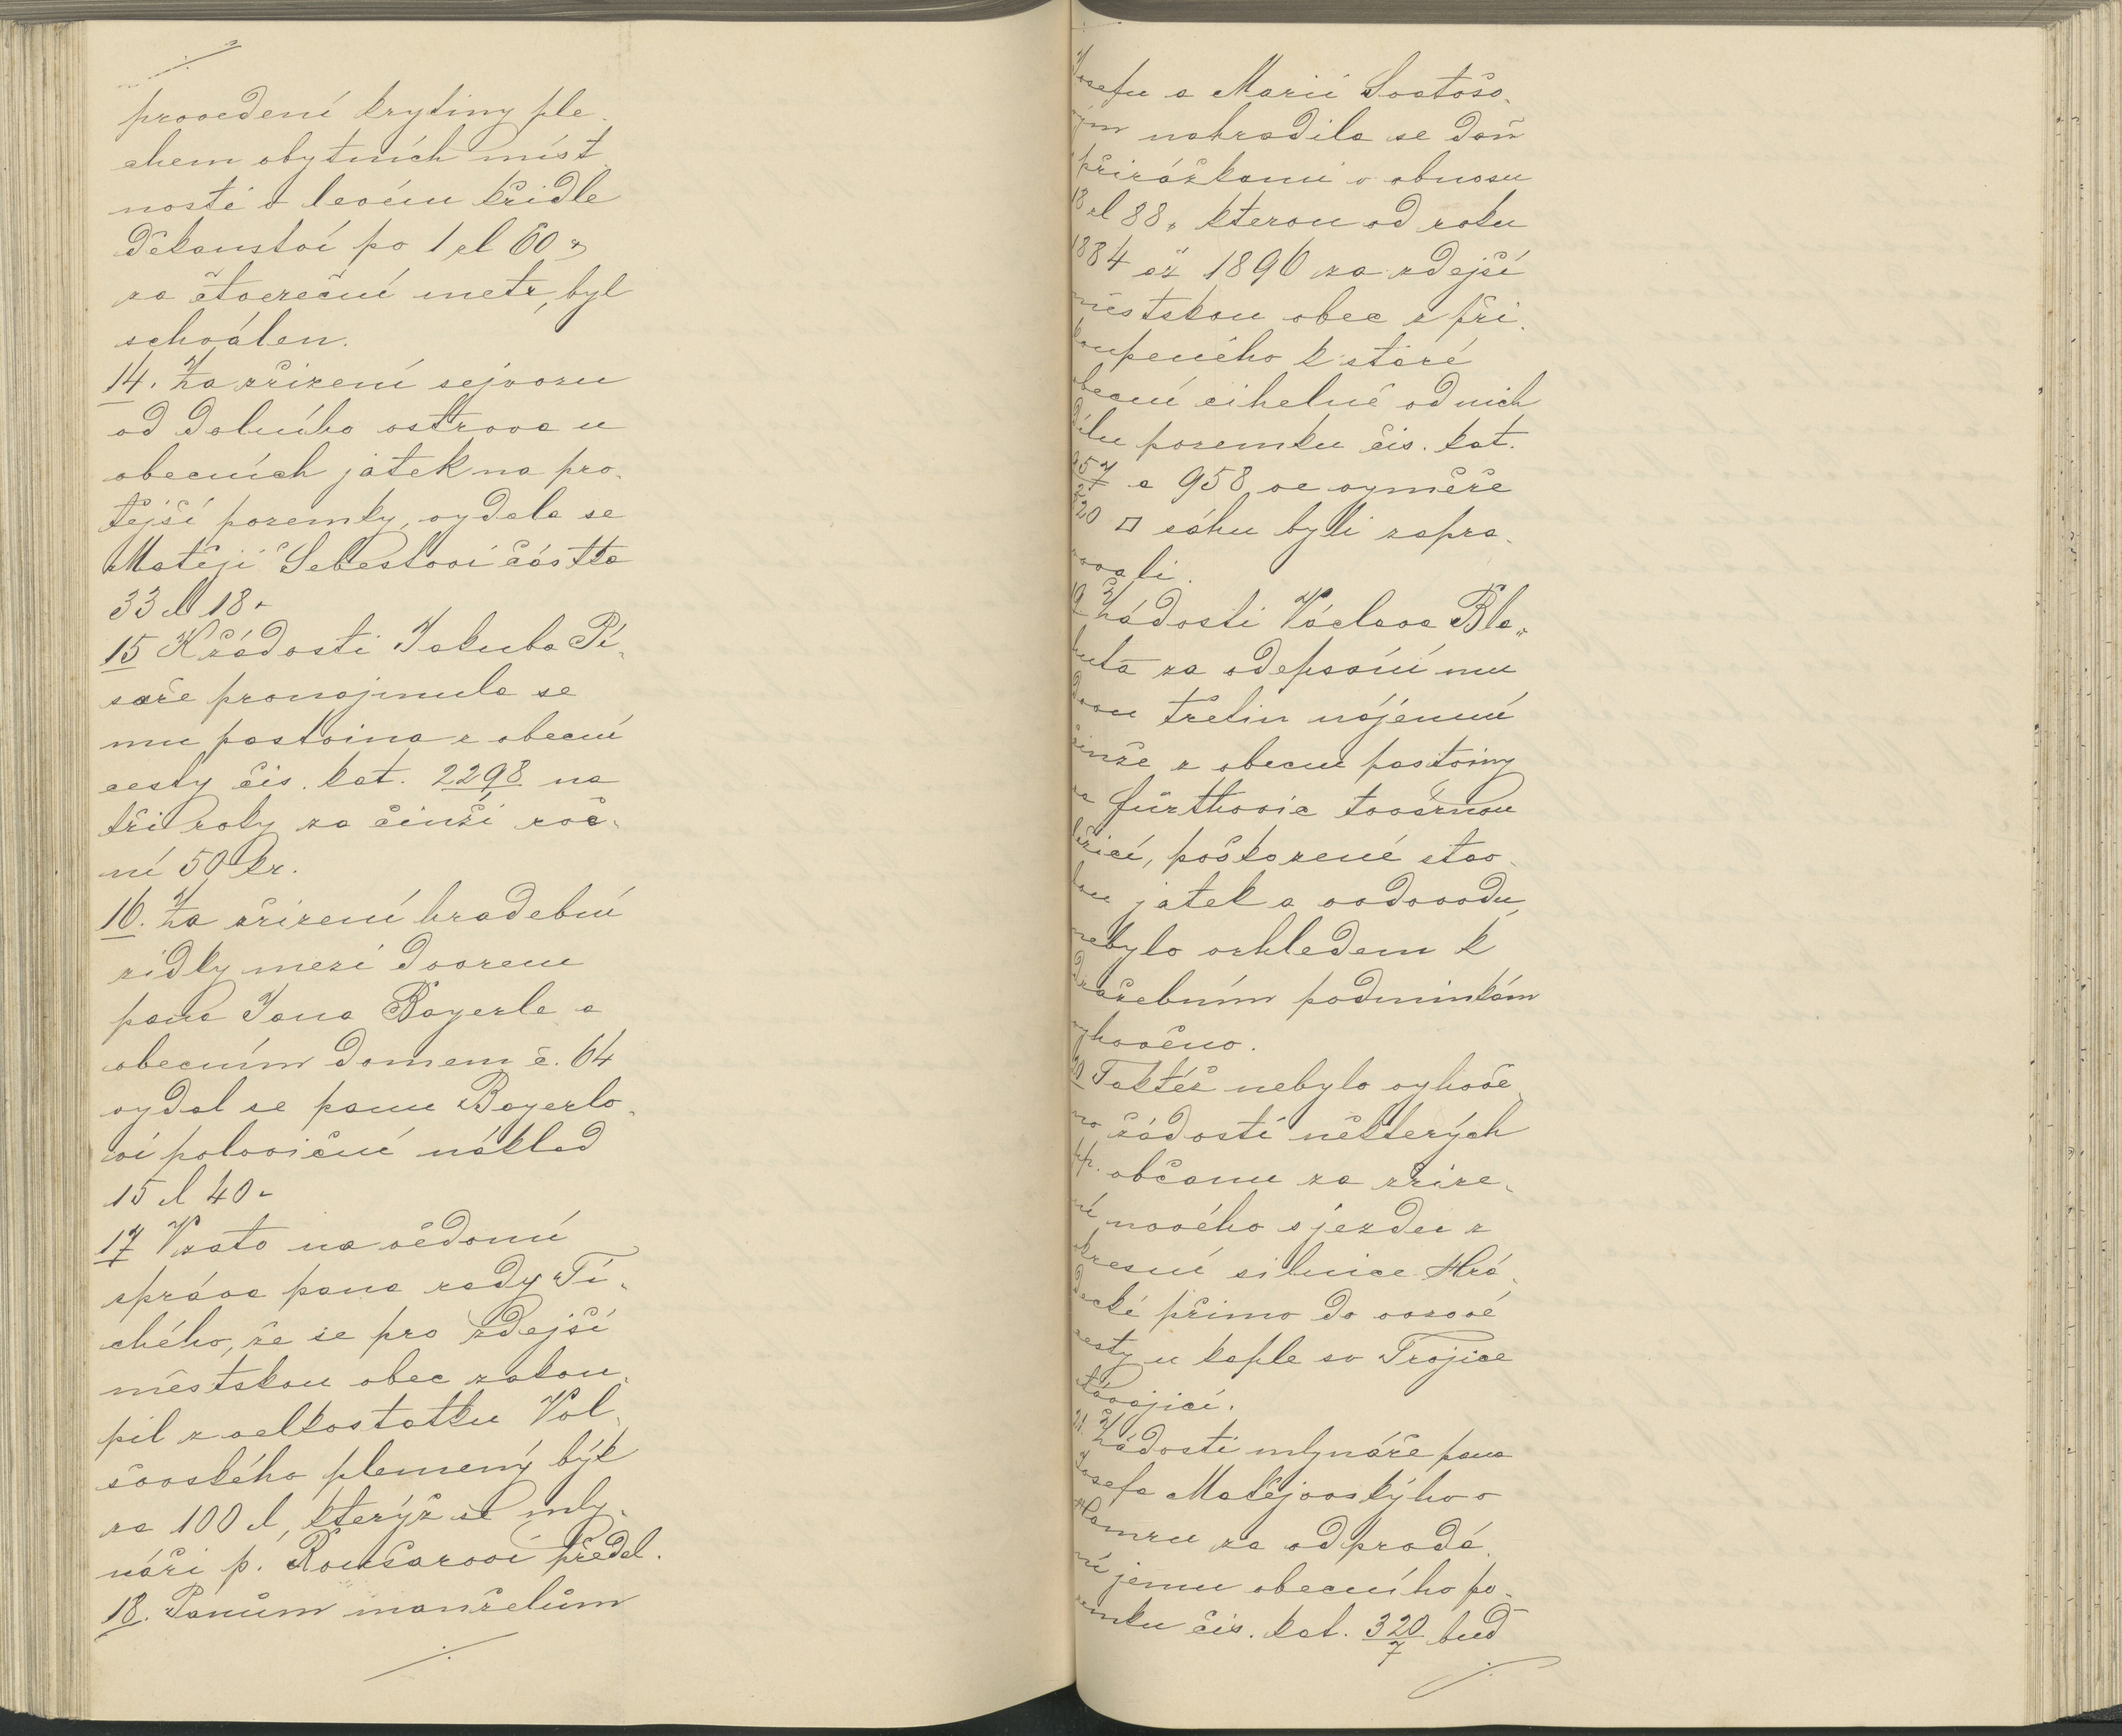 provedení krytiny ple-
chem obytních míst
ností v levém křídle
děkanství po 1 zl 60 x
za čtvereční metr, byl
schválen.
14. Za zřízení sejvozu
od dolního ostrova u
obecních jatek na pro-
tější pozemky, vydala se
Matěji Šebestovi částka
33 zl 18 x
15 K žádosti Jakuba Pí-
saře pronajmula se
mu pastvina z obecní
cesty čís. kat. 2298 na
tři roky za činži roč-
ní 50 kr.
16. Za zřízení hradební
zídky mezi dvorem
pana Jana Bayerle a
obecním domem č. 64
vydal se panu Bayerlo-
vi poloviční náklad
15 zl 40 x
17 Vzato na vědomí
zpráva pana rady Ti-
chého, že se pro zdejší
městskou obec zakou-
pil z velkostatku Vol-
šovského plemený býk
za 100 zl, kterýž se mly-
náři p. Rousarovi předal.
18. Panům manželům
Josefu a Marii Svatošo-
vým nahradila se daň
s přirážkami v obnosu
18 zl 88 x kterou od roku
1884 až 1896 za zdejší
městskou obec z při-
koupeného k staré
obecní cihelně od nich
dílu pozemku čís. kat.
957/2 a 958 ve výměře
220 □ sáhu byli zapra-
vovali.
19 Žádosti Václava Bla-
huta za odepsání mu
dvou třetin nájemní
činže z obecní pastviny
za Fürthovic továrnou
ležící, poškozené stav-
bou jatek a vodovodu,
nebylo vzhledem k
dražebním podmínkám
vyhověno.
20 Taktéž nebylo vyhově-
no žádosti některých
pp. občanu za zříze-
ní nového sjezdu z
okresní silnice Hrá-
decké přímo do vozové
cesty u kaple sv Trojice
stávající.
21. Žádosti mlynáře pana
Josefa Matějovskýho v
Hamru za odprodá-
ní jemu obecního po-
zemku čís. kat. 320/7 buď